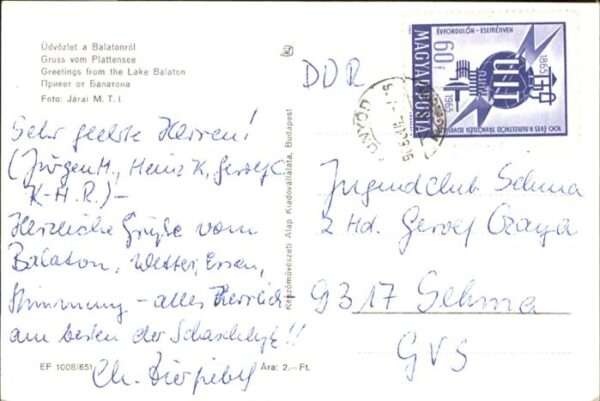 Üdvözlet a Balatonról
Gruss vom Plattensee
Greetings from the Lake Balaton
Привет от Балатона
Foto: Járai M. T. I.
Sehr geehrte Herren!
(Jürgen H., Heinz K, Gerolf C.
K-H. R.) –
Herzliche Grüße vom
Balaton. Wetter, Essen,
Stimmung – alles herrlich
am besten der Schaschlyk!!
Ch.
EF 1008/651
Ára: 2,– Ft.
Képzőművészeti Alap Kiadóvállalata, Budapest
DDR
NEMZETKÖZI - HÍRKÖZLÉSI
MAGYAR POSTA
60f
UIT
1865
1965
Jugendclub Sehma
z Hd. Gerolf
9317 Sehma
GVS